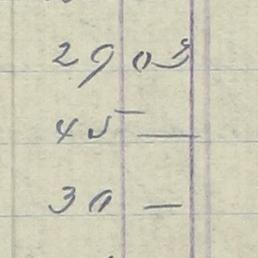 29 03
45 —
30 —